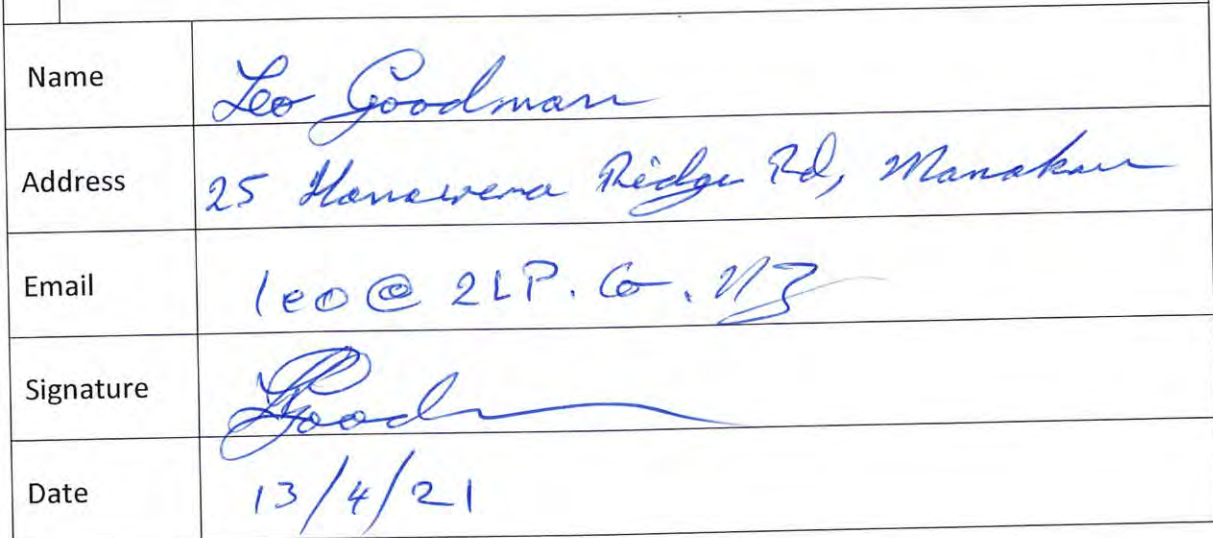 Name Leo Goodman
Address 25 Hanawera Ridge Rd, Manakau
Email leo@2LP.Co.NZ
Signature LGood
Date 13/4/21